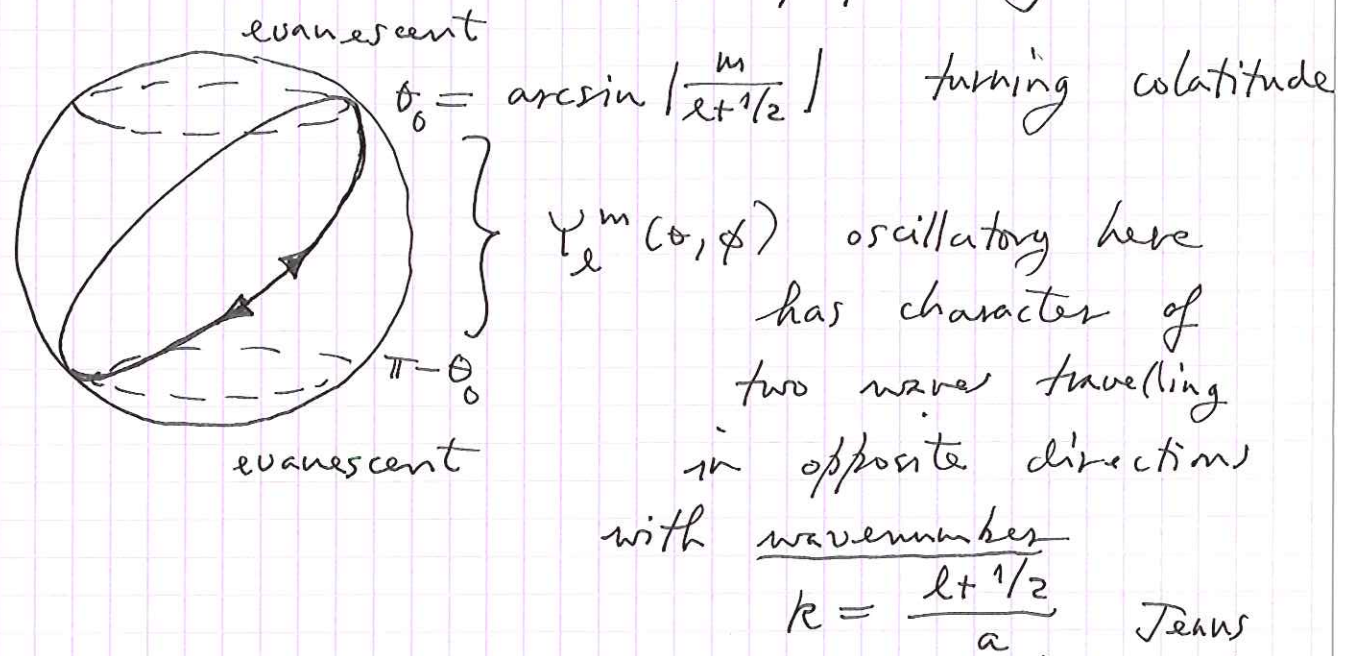 evanescent
θ₀ = arcsin |m/(l+1/2)| turning colatitude
Yₗᵐ(θ,φ) oscillatory here
has character of
π-θ₀
two waves travelling
evanescent
in opposite directions
with wavenumber
k = (l+1/2)/a Jeans